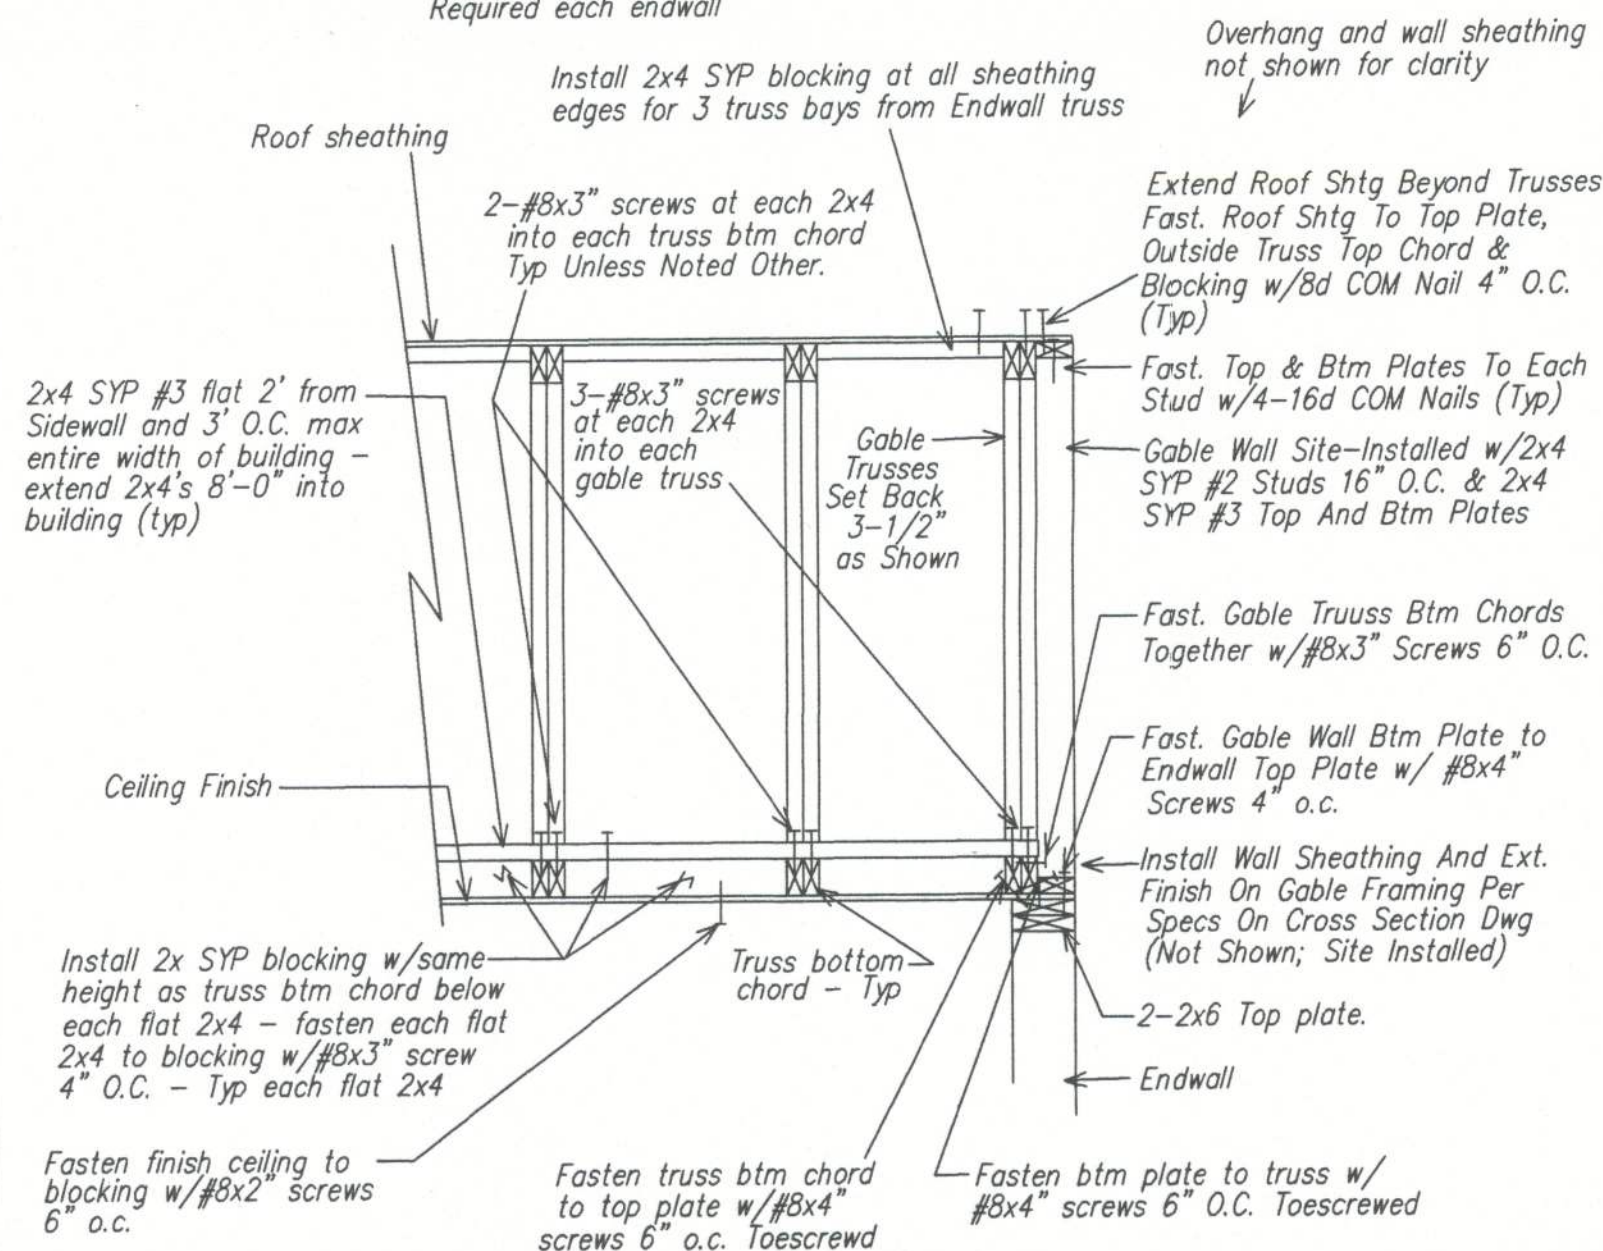 Required each endwall
Overhang and wall sheathing
not shown for clarity
Install 2x4 SYP blocking at all sheathing
edges for 3 truss bays from Endwall truss
Roof sheathing
2-#8x3" screws at each 2x4
into each truss btm chord
Typ Unless Noted Other.
Extend Roof Shtg Beyond Trusses
Fast. Roof Shtg To Top Plate,
Outside Truss Top Chord &
Blocking w/8d COM Nail 4" O.C.
(Typ)
Fast. Top & Btm Plates To Each
Stud w/4-16d COM Nails (Typ)
2x4 SYP #3 flat 2' from
Sidewall and 3' O.C. max
entire width of building -
extend 2x4's 8'-0" into
building (typ)
3-#8x3" screws
at each 2x4
into each
gable truss
Gable
Trusses
Set Back
3-1/2"
as Shown
Gable Wall Site-Installed w/2x4
SYP #2 Studs 16" O.C. & 2x4
SYP #3 Top And Btm Plates
Fast. Gable Truuss Btm Chords
Together w/#8x3" Screws 6" O.C.
Fast. Gable Wall Btm Plate to
Endwall Top Plate w/ #8x4"
Screws 4" o.c.
Ceiling Finish
Install Wall Sheathing And Ext.
Finish On Gable Framing Per
Specs On Cross Section Dwg
(Not Shown; Site Installed)
Install 2x SYP blocking w/same
height as truss btm chord below
each flat 2x4 - fasten each flat
2x4 to blocking w/#8x3" screw
4" O.C. - Typ each flat 2x4
Truss bottom
chord - Typ
2-2x6 Top plate.
Endwall
Fasten finish ceiling to
blocking w/#8x2" screws
6" o.c.
Fasten truss btm chord
to top plate w/#8x4"
screws 6" o.c. Toescrewd
Fasten btm plate to truss w/
#8x4" screws 6" O.C. Toescrewed